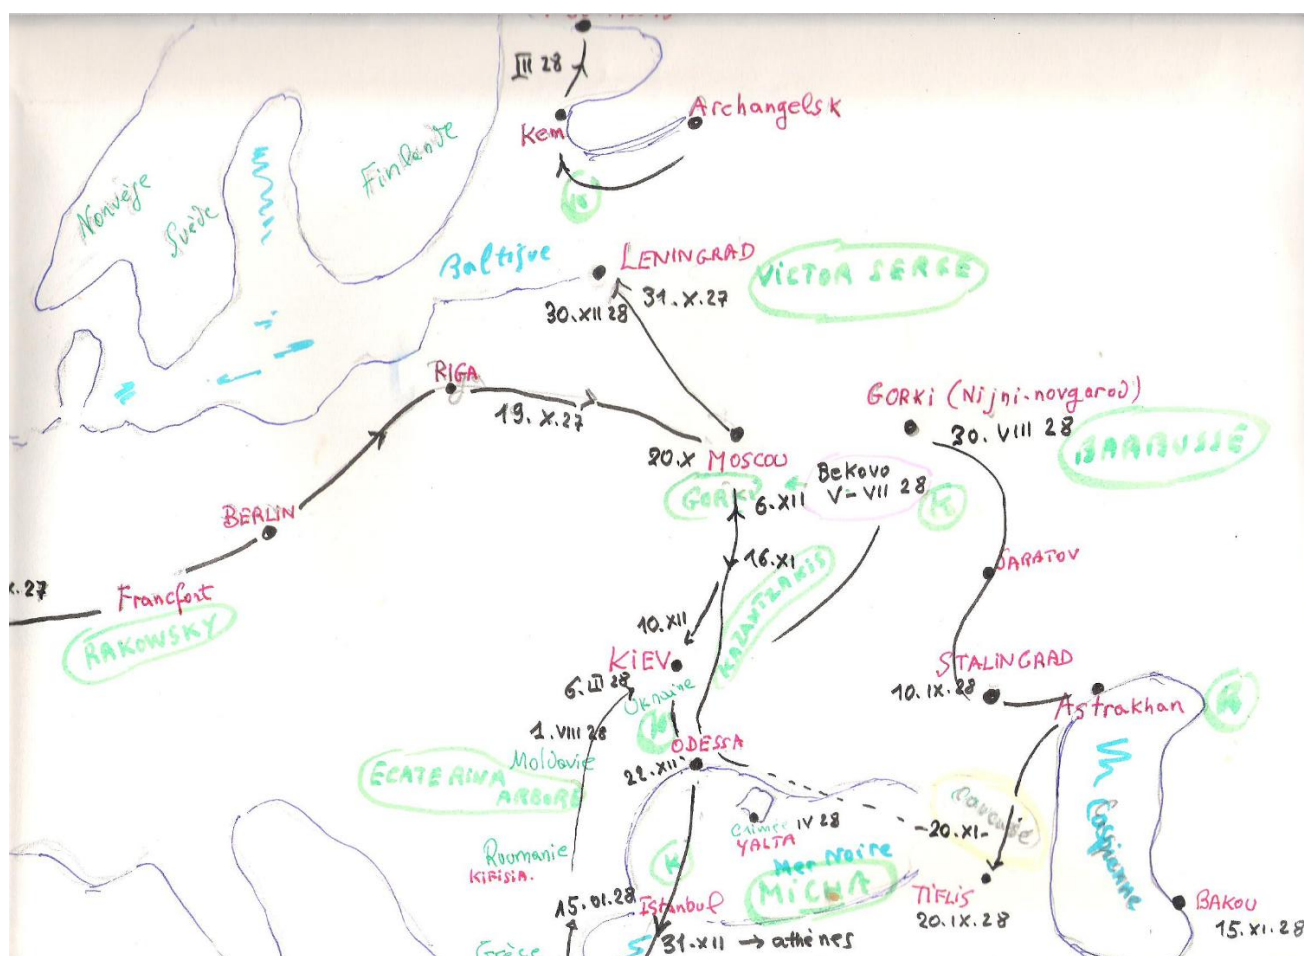 III 28
Kem
Archangelsk
Norvège
Suède
Finlande
Baltique
LENINGRAD
VICTOR SERGE
30.XII 28
31.X.27
RIGA
19.X.27
GORKI (Nijni-novgorod)
30.VIII 28
BARBUSSE
20.X MOSCOU
GORKI
6.XII
Bekovo
V-VII 28
K
BERLIN
16.XI
SARATOV
X.27
Francfort
RAKOWSKY
KAZANTZAKIS
10.XII
KIEV
STALINGRAD
10.IX.28
Astrakhan
Ukraine
1.VIII 28
Moldavie
ODESSA
22.XII
ECATERINA
ARBORE
Caucase
Crimée IV 28
YALTA
-20.XI-
Caspienne
Roumanie
KIFISIA.
K
Mer Noire
MICHA
TIFLIS
20.IX.28
BAKOU
15.XI.28
15.01.28
Istanbul
31.XII → athènes
Grèce